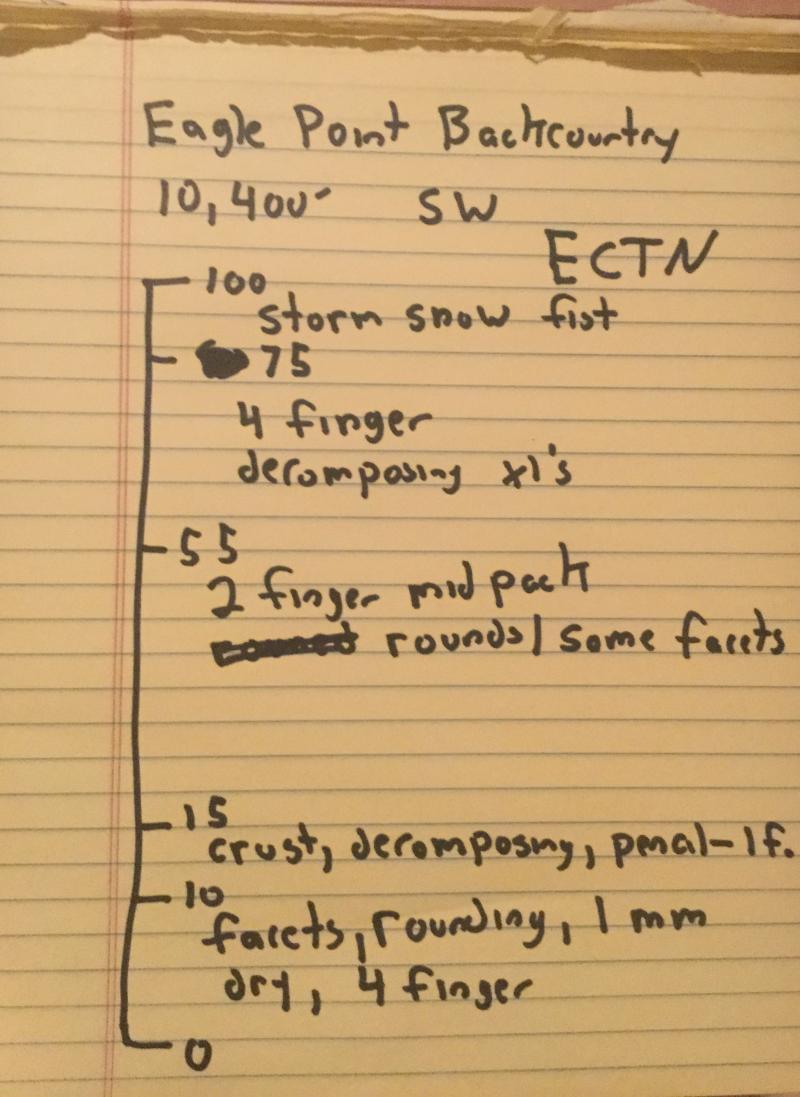 Eagle Point Backcountry
10,400' SW
ECTN
100
storm snow fist
75
4 finger
decomposing xl's
55
2 finger mid pack
rounds/some facets
15
crust, decomposing, pencil-1f.
10
facets, rounding, 1 mm
dry, 4 finger
0